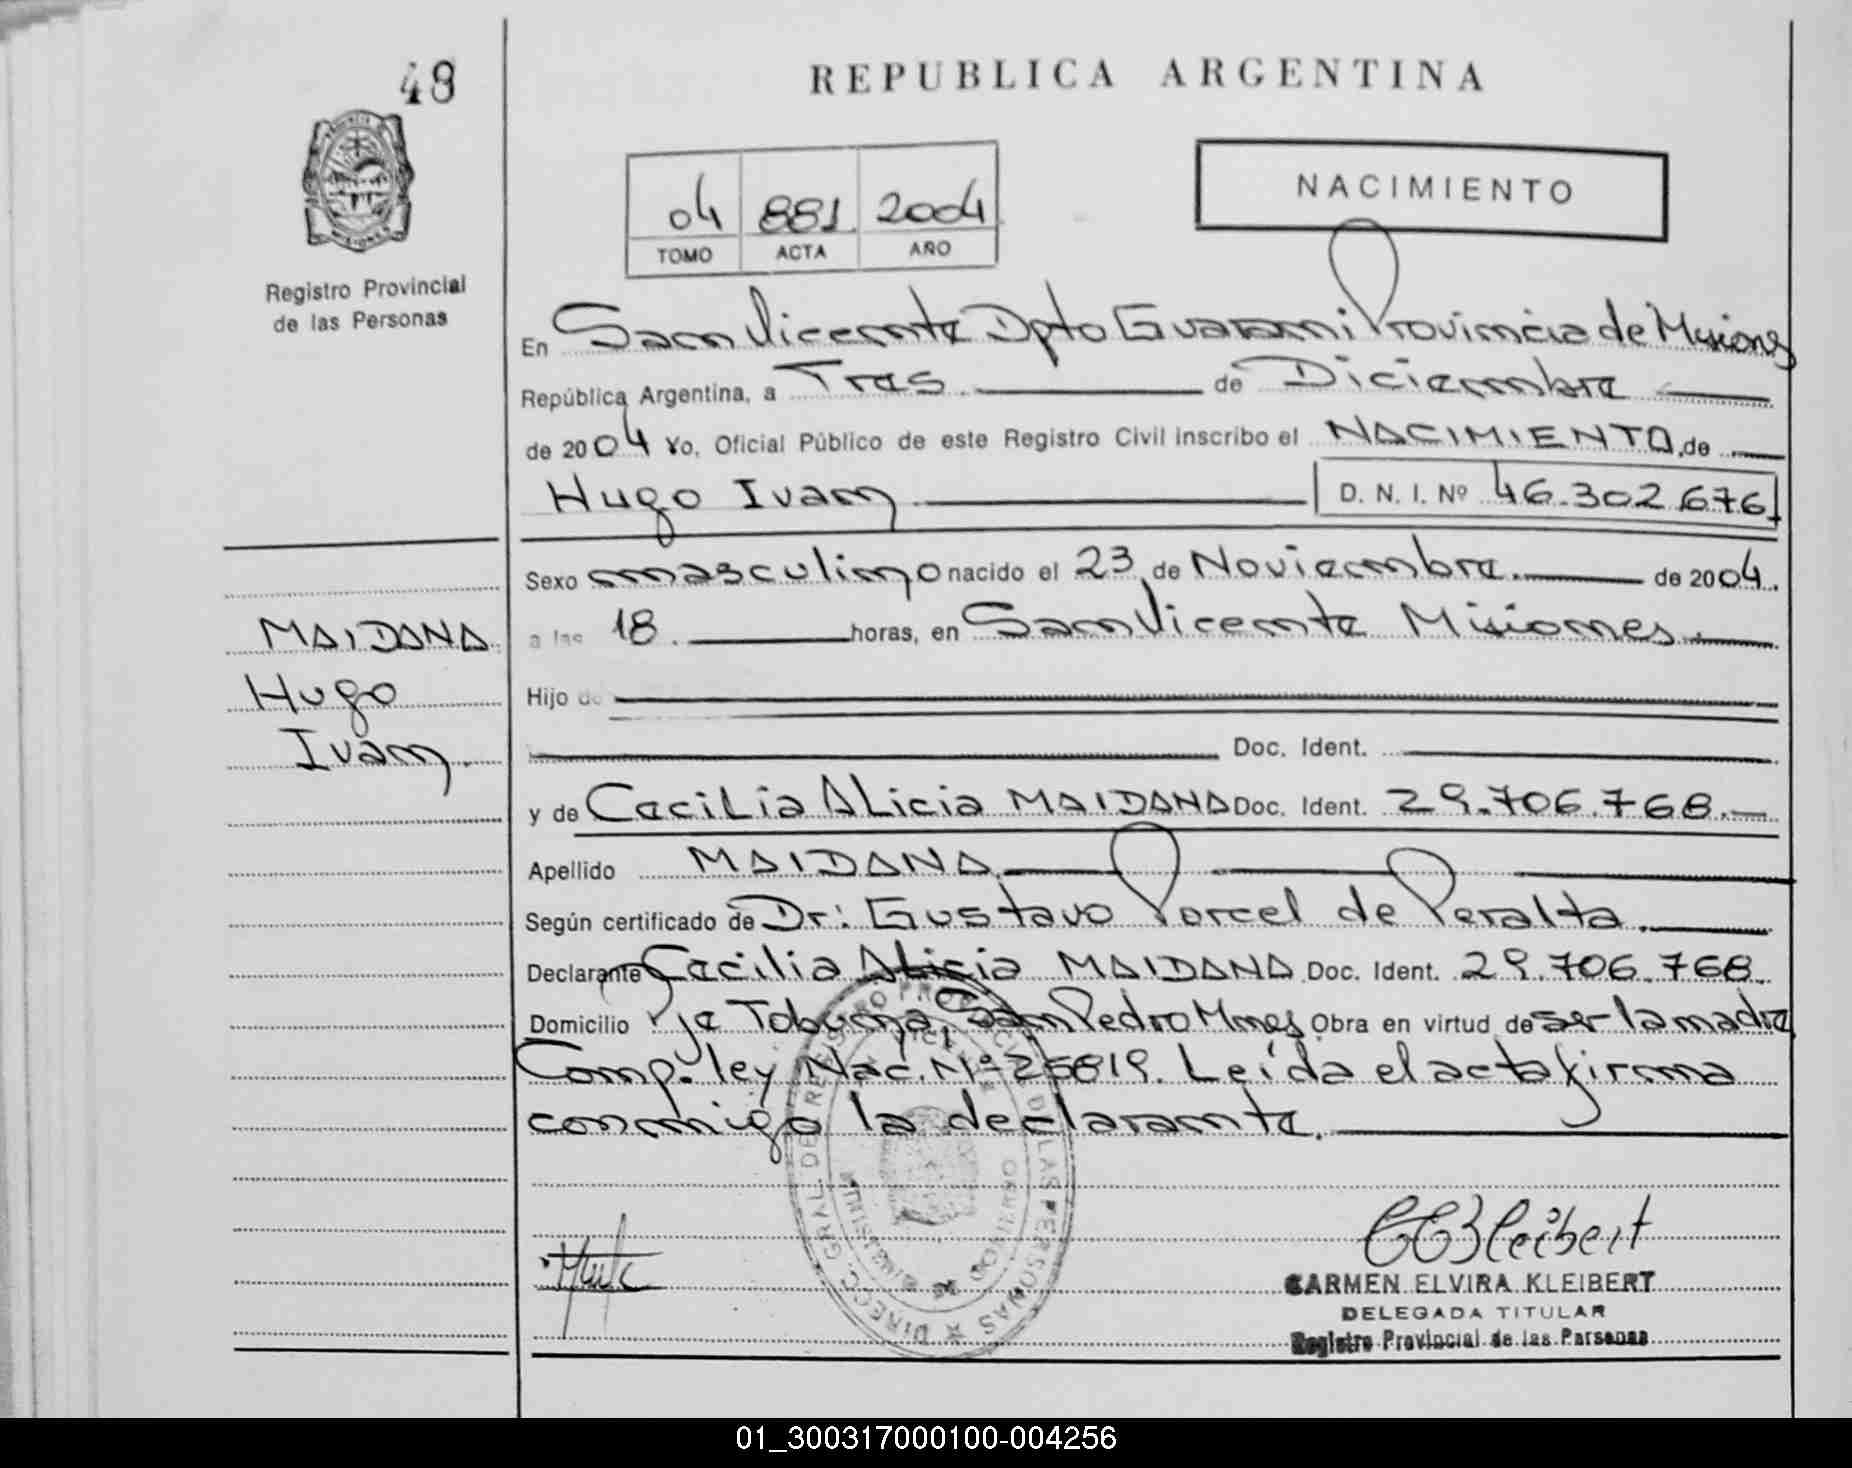 48
REPUBLICA ARGENTINA
04 881. 2004
TOMO ACTA AÑO
NACIMIENTO
Registro Provincial
de las Personas
En San Vicente Dpto Guaraní Provincia de Misiones
República Argentina, a Tres de Diciembre
de 2004 Yo, Oficial Público de este Registro Civil inscribo el NACIMIENTO, de
Hugo Ivan D. N. I. Nº 46.302.676
Sexo masculino nacido el 23 de Noviembre. de 2004.
a las 18. horas, en San Vicente Misiones.
Hijo de
Doc. Ident.
y de Cecilia ALicia MAIDANA Doc. Ident. 29.706.768.
Apellido MAIDANA
Según certificado de Dr: Gustavo Porcel de Peralta.
Declarante Cecilia ALicia MAIDANA Doc. Ident. 29.706.768.
Domicilio Pje Tobuna, San Pedro Mnes. Obra en virtud de ser la madre
Comp. ley Nac. Nº 25819. Leída el acta firma
conmigo la declarante.
MAIDANA
Hugo
Ivan.
DIRECC. GRAL. DE REGISTRO PROVINCIAL DE LAS PERSONAS
MINISTERIO GOBIERNO
CARMEN ELVIRA KLEIBERT
DELEGADA TITULAR
Registro Provincial de las Personas
01_300317000100-004256